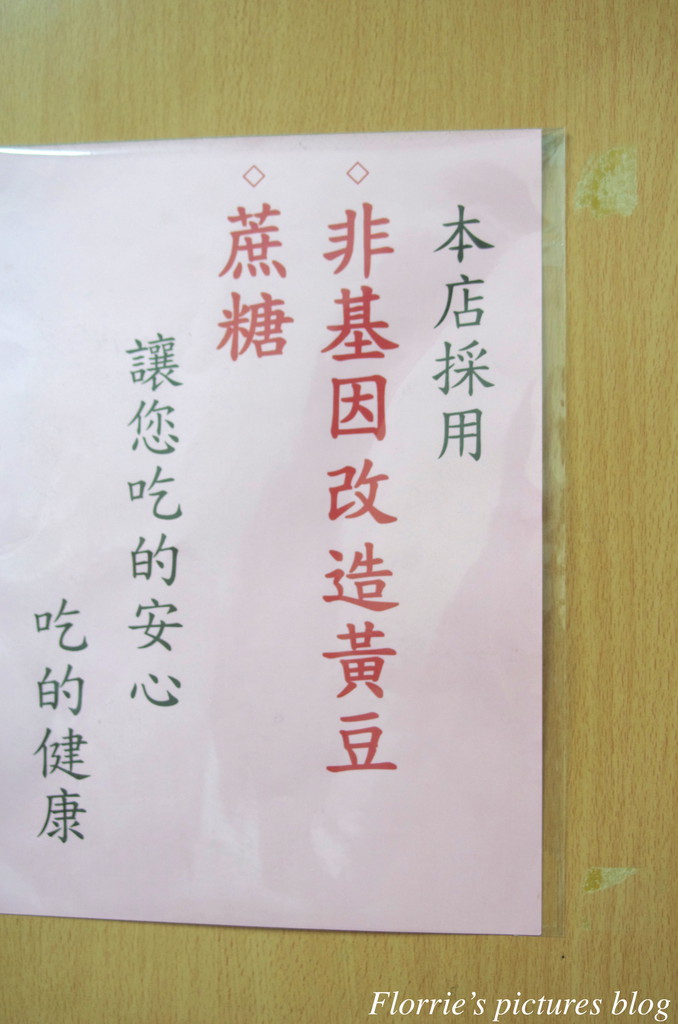 本店採用
◇非基因改造黃豆
◇蔗糖
讓您吃的安心
吃的健康
Florrie's pictures blog